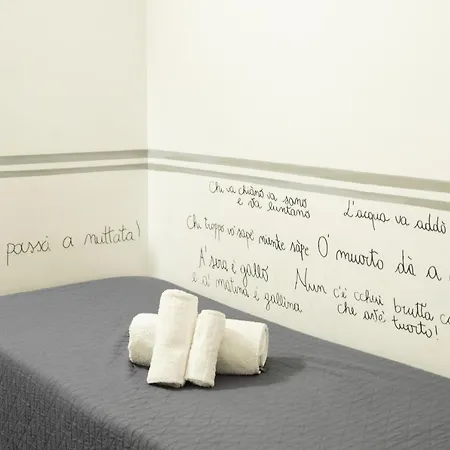 passà a nuttata!
Chi va chiano va sano
e va luntano
L'acqua va addò
Chi troppo vo' sapè niente sàpe
O' muorto dà a
A' sira è gallo
e a' matina è gallina
Nun c'è cchiu brutta
che avè tuorto!